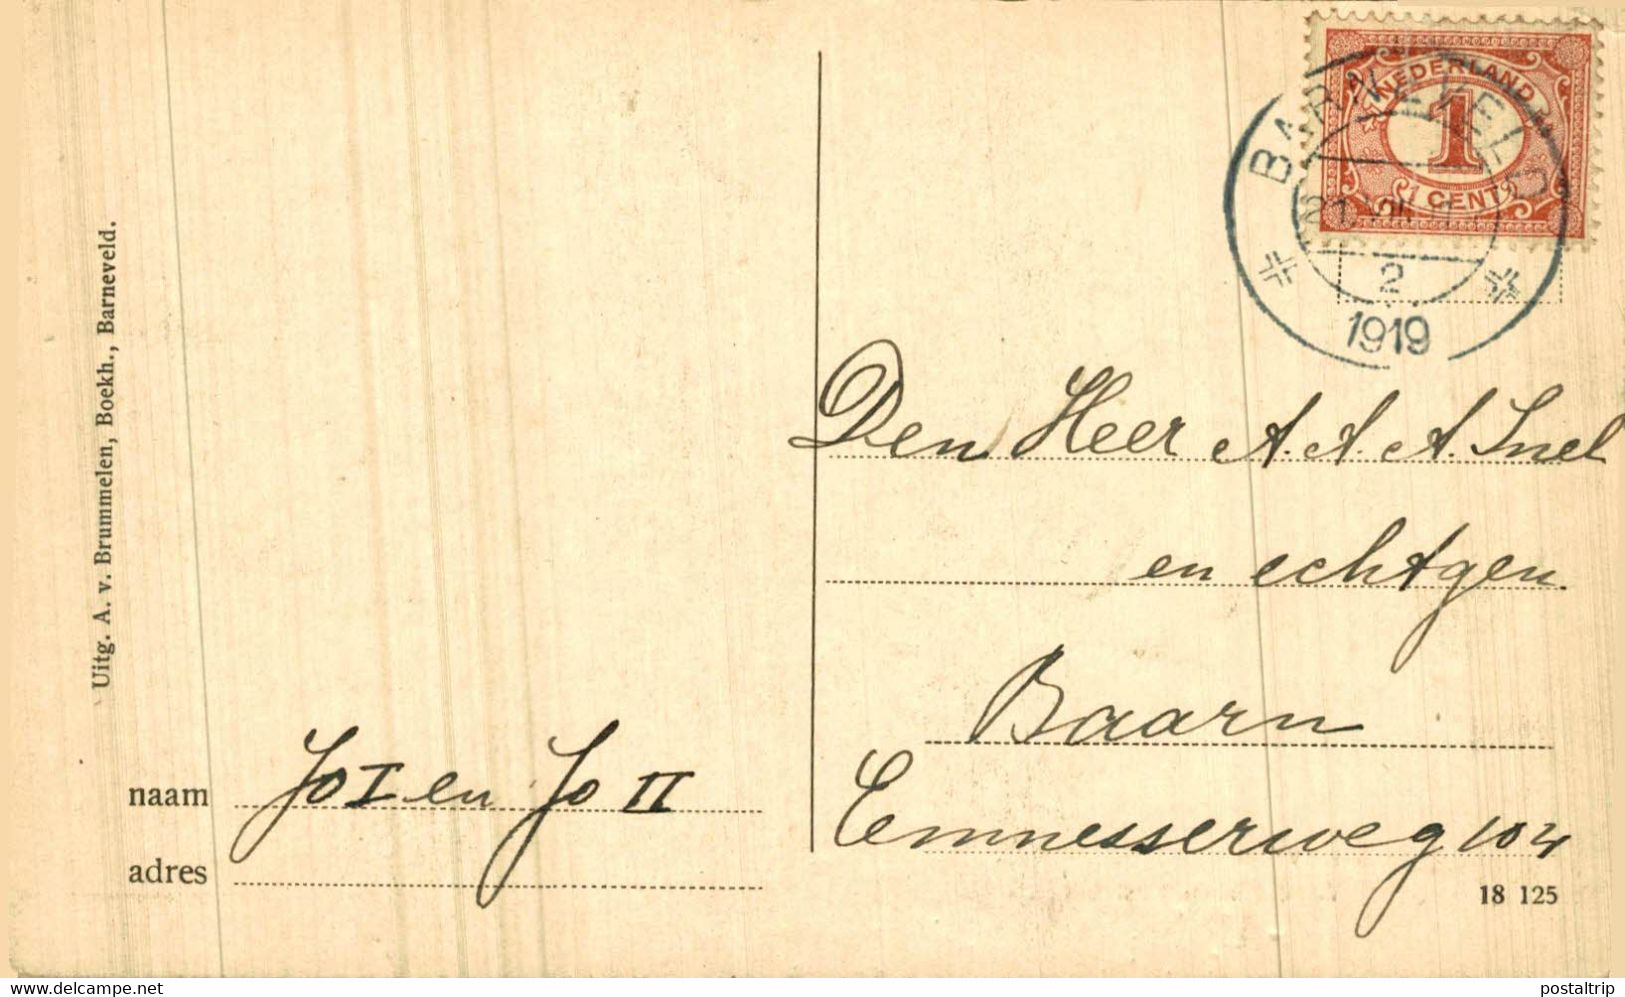 Uitg. A. v. Brummelen, Boekh., Barneveld.
NEDERLAND
1
1 CENT
BARNEVELD
2
1919
Den Heer A. A. A. Snel
en echtgen.
Baarn
Emnesserweg 104
naam Jo I en Jo II
adres
18 125
www.delcampe.net
postaltrip